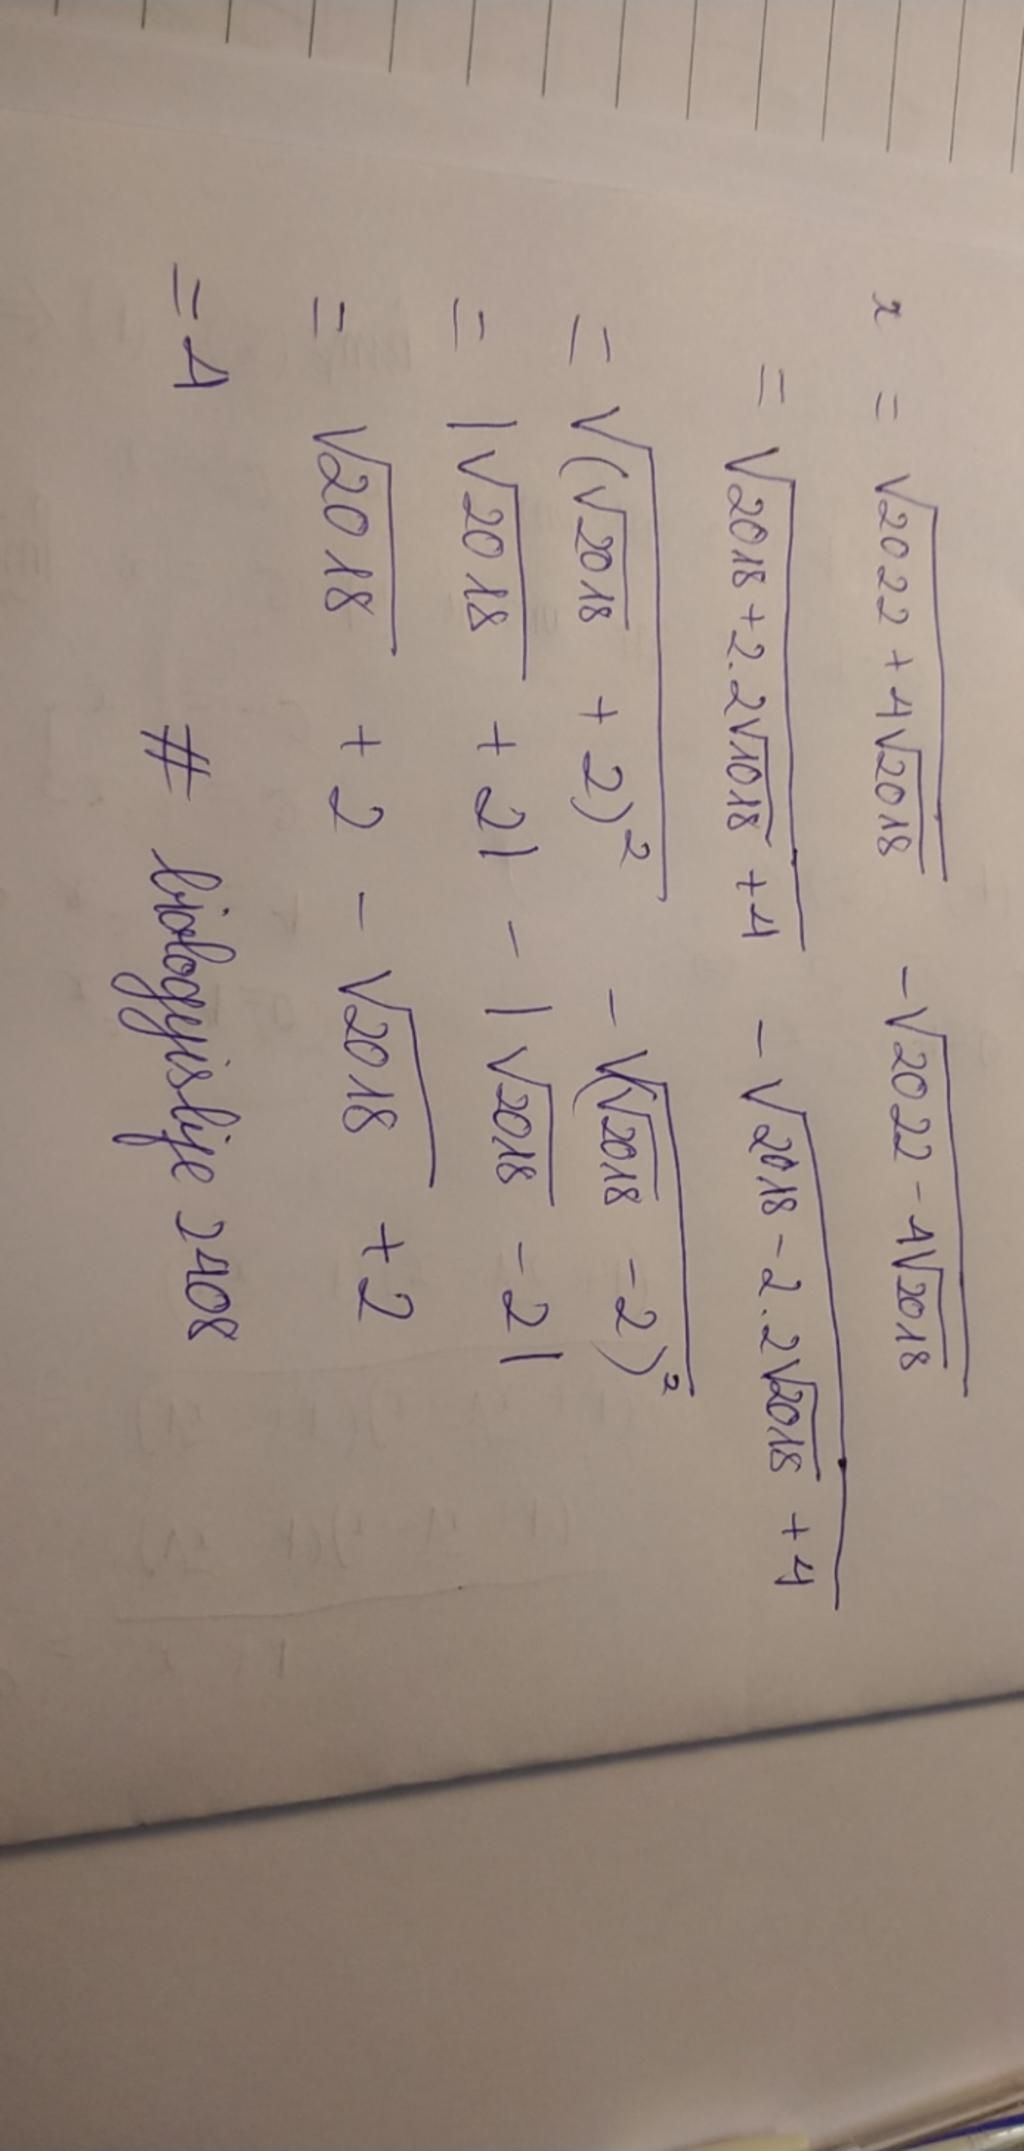 x = √(2022 + 4√2018) - √(2022 - 4√2018)
= √(2018 + 2.2√1018 + 4) - √(2018 - 2.2√2018 + 4)
= √((√2018 + 2)²) - √((√2018 - 2)²)
= |√2018 + 2| - |√2018 - 2|
= √2018 + 2 - √2018 + 2
= 4